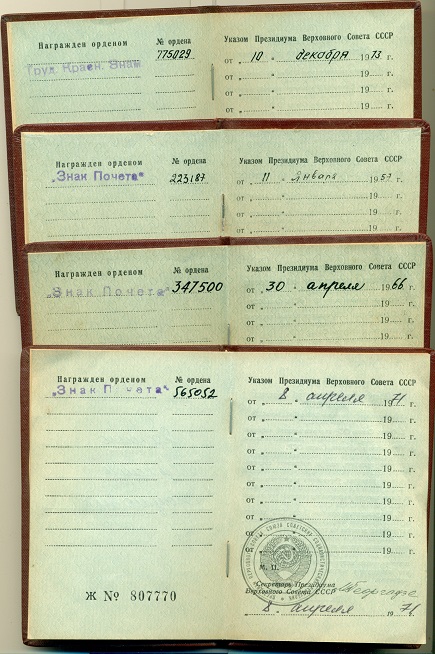 Награжден орденом № ордена Указом Президиума Верховного Совета СССР
Труд. Красн. Знам 775029 от „ 10 " декабря 1973 г.
от „ " 19 г.
от „ " 19 г.
от „ " 19 г.
Награжден орденом № ордена Указом Президиума Верховного Совета СССР
„Знак Почета" 223187 от „ 11 " Января 1957 г.
от „ " 19 г.
от „ " 19 г.
Награжден орденом № ордена Указом Президиума Верховного Совета СССР
„Знак Почета" 347500 от „ 30 " апреля 1966 г.
от „ " 19 г.
от „ " 19 г.
от „ " 19 г.
Награжден орденом № ордена Указом Президиума Верховного Совета СССР
„Знак П чета" 565052 от „ 8 " апреля 1971 г.
от „ " 19 г.
от „ " 19 г.
от „ " 19 г.
от „ " 19 г.
от „ " 19 г.
от „ " 19 г.
от „ " 19 г.
М. П.
Секретарь Президиума
Верховного Совета СССР
Ж № 807770
„ 8 " апреля 1971 г.